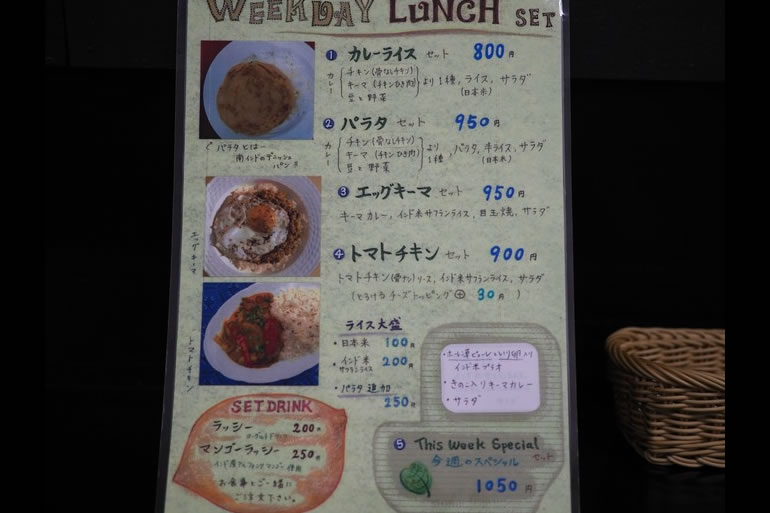 WEEKDAY LUNCH SET
① カレーライス セット 800円
カレー
チキン(骨なしチキン)
キーマ (チキンひき肉)
豆と野菜
より1種, ライス, サラダ
(日本米)
パラタとは—
南インドのデニッシュ
パン
② パラタ セット 950円
カレー
チキン(骨なしチキン)
キーマ (チキンひき肉)
豆と野菜
より
1種
, パラタ, 半ライス, サラダ
(日本米)
③ エッグキーマ セット 950円
キーマカレー, インド米サフランライス, 目玉焼, サラダ
エッグキーマ
④ トマトチキン セット 900円
トマトチキン(骨ナシ)ソース, インド米サフランライス, サラダ
(とろけるチーズトッピング⊕ 30円)
トマトチキン
ライス大盛
・日本米 100円
・インド米 200円
サフランライス
・パラタ 追加
250円
SET DRINK
ラッシー 200円
ヨーグルトドリンク
マンゴーラッシー 250円
インド産アルフォンソマンゴー使用
お食事とご一緒に
ご注文下さい。
インド米プラオ
・きのこ入りキーマカレー
・サラダ
⑤ This Week Special
今週のスペシャル セット
1050円